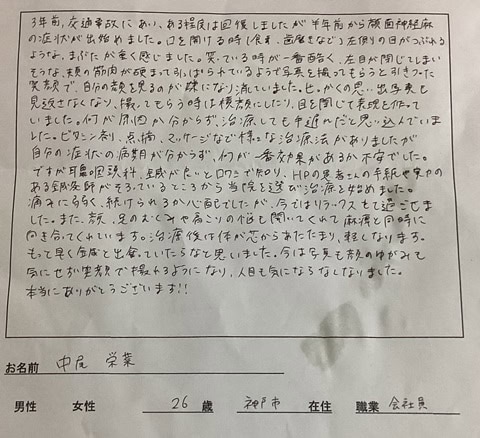 3年前、交通事故にあい、ある程度は回復しましたが半年前から顔面神経麻
の症状が出始めました。口を開ける時(食事、歯磨きなど)左側の目がつぶれる
ような、まぶたが重く感じました。笑っている時が一番酷く、左目が閉じてしまい
そうな、頬の筋肉が硬まって引っぱられているようで写真を撮ってもらうと引きつった
笑顔で、自分の顔を見るのが嫌になり流していました。せっかくの思い出写真も
見返さなくなり、撮ってもらう時は横顔にしたり、目を閉じて表現を作って
いました。何が原因か分からず、治療しても手遅れだと思い込んでいま
した。ビタミン剤、点滴、マッサージなど様々な治療法がありましたが
自分の症状の病期が分からず、何が一番効果があるか不安でした。
ですが耳鼻咽喉科、鍼が良いと口コミで知り、HPの患者さんの手紙や実力の
ある鍼灸師がそろっているところから当院を選び治療を始めました。
痛みに弱く、続けられるか心配でしたが、今ではリラックスもして過ごせま
した。また、顔、足のむくみや肩こりの相談も聞いてくれて麻痺と同時に
向き合ってくれています。治療後は体が芯からあたたまり、軽くなります。
もっと早く鍼灸と出会っていたらなと思いました。今は写真も顔のゆがみも
気にせず笑顔で撮れるようになり、人目も気にならなくなりました。
本当にありがとうございます!!
お名前 中尾 栄菜
男性 女性 26 歳 神戸市 在住 職業 会社員